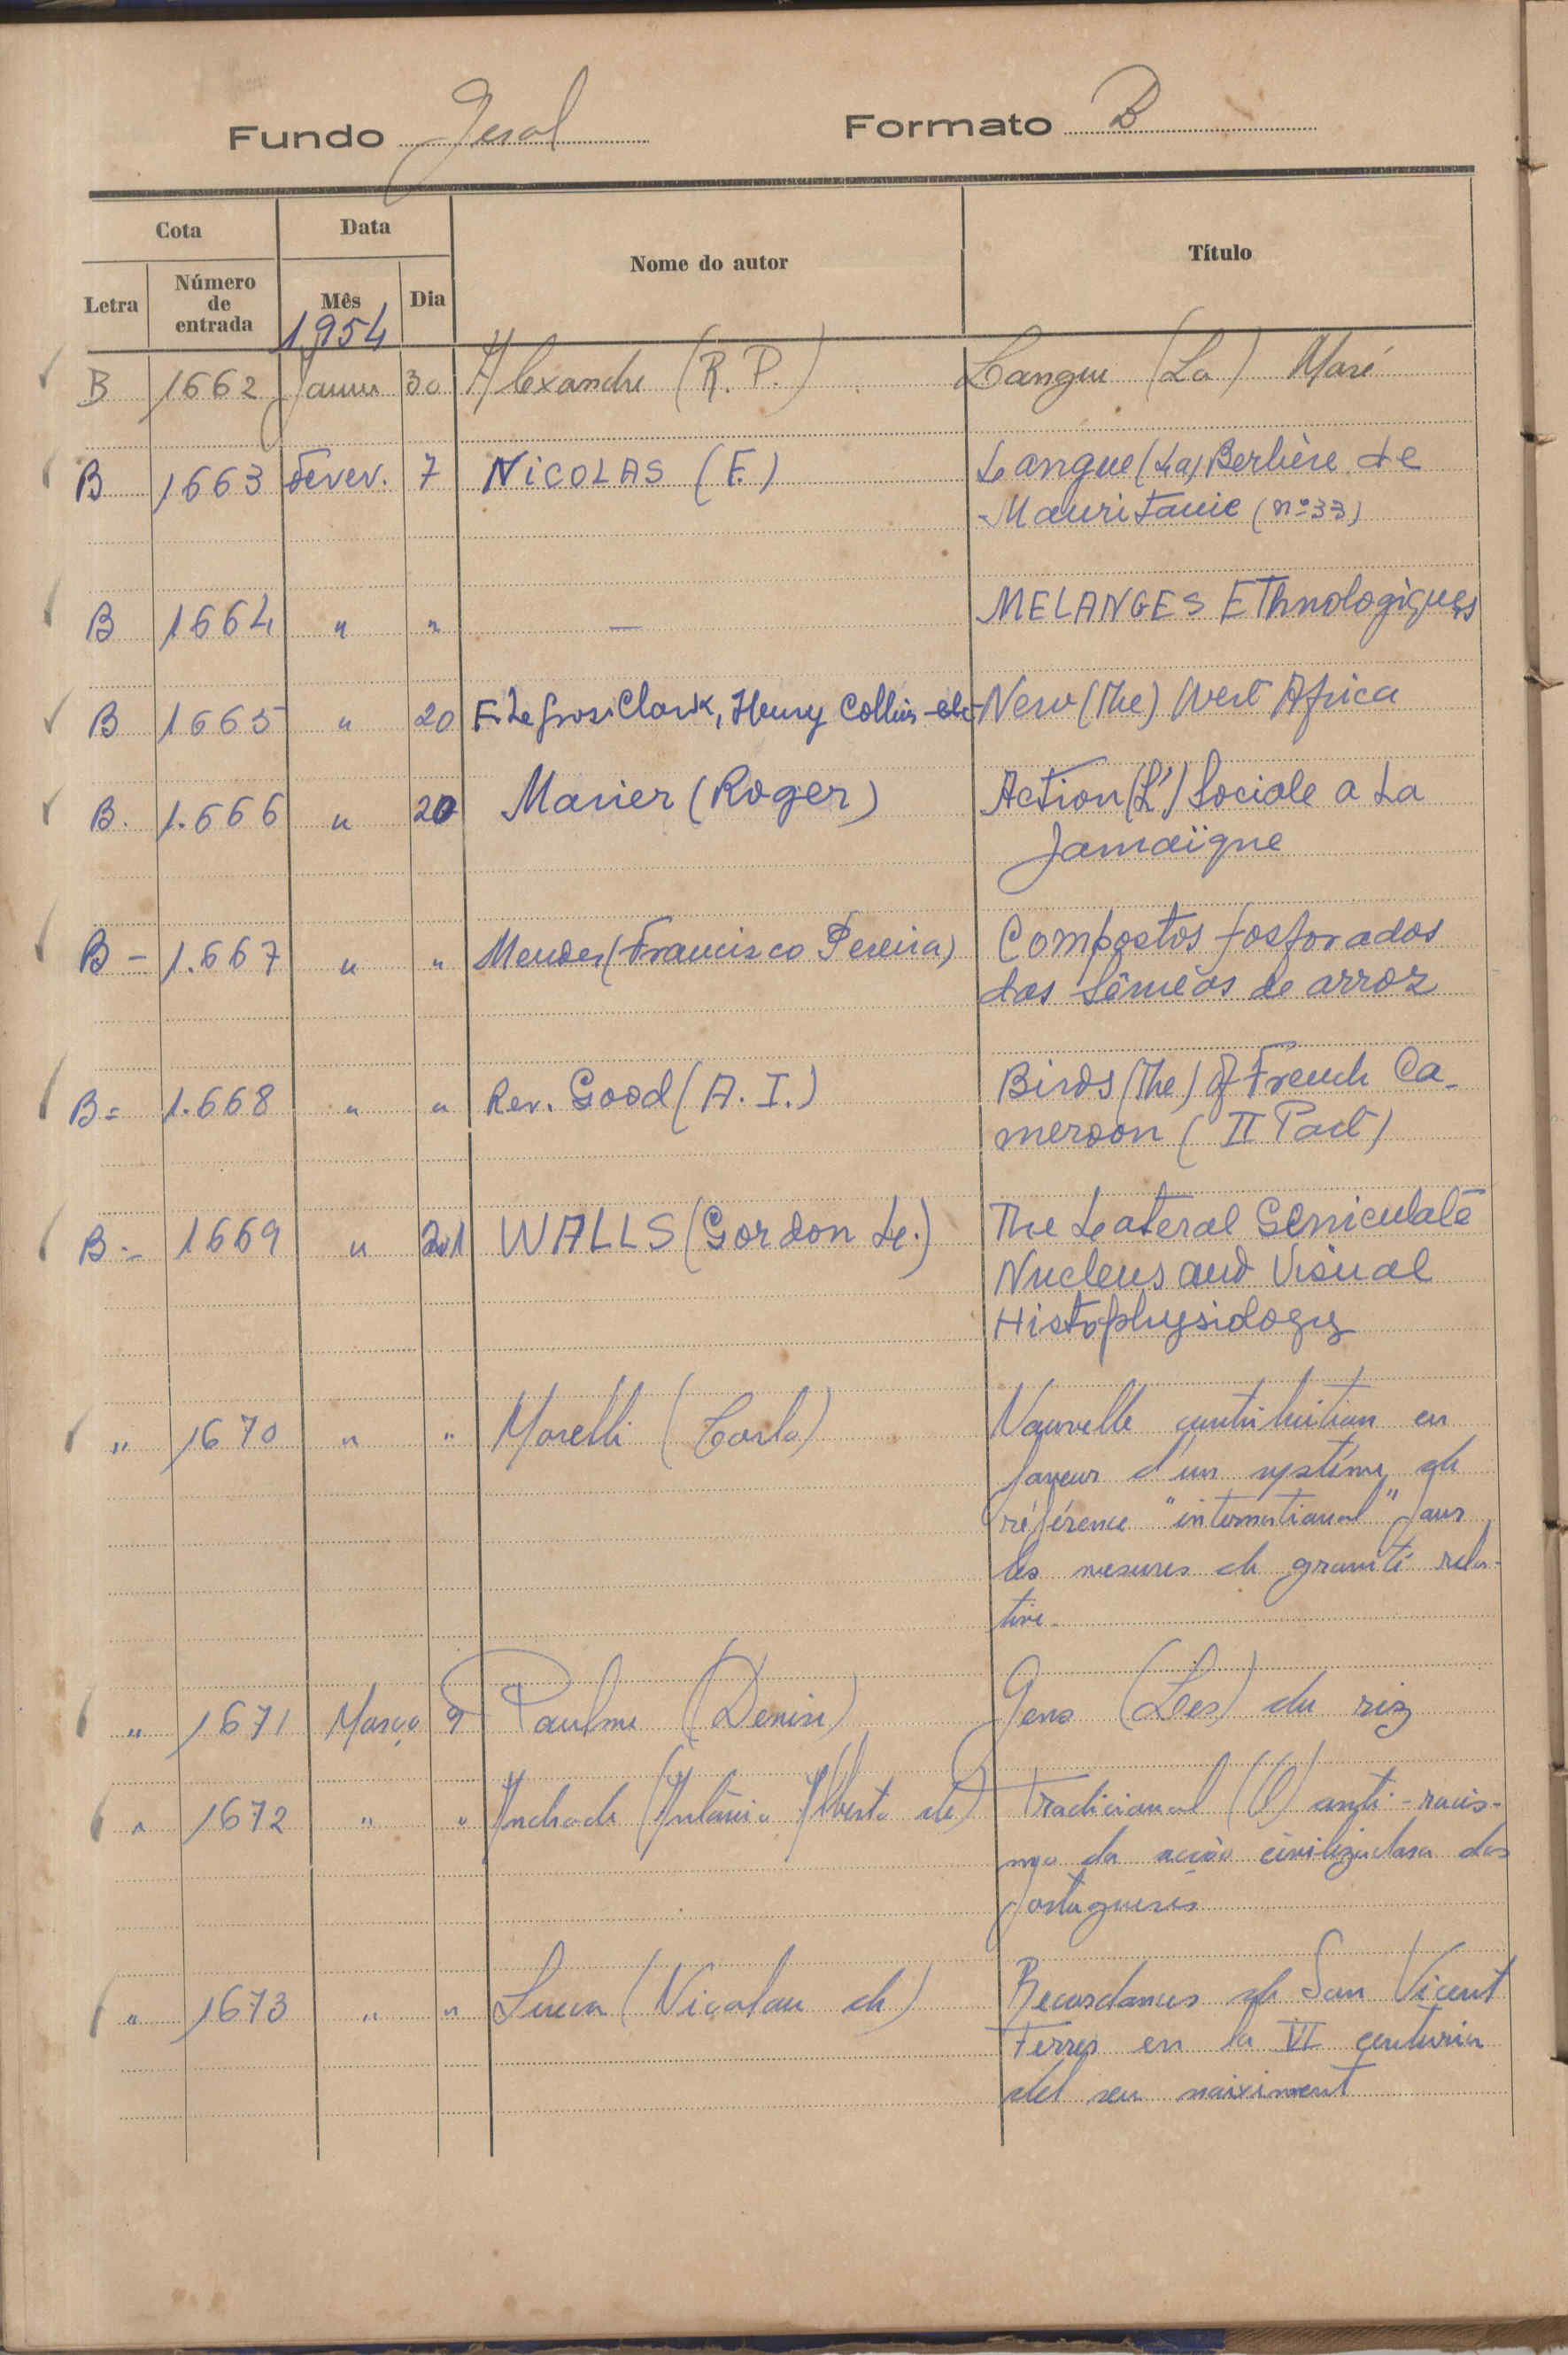 Fundo Geral Formato B
Cota Data Nome do autor Título
Letra Número de entrada Mês Dia
1954
B 1662 Janei 30 Alexandre (R. P.) Langue (La) Moré
B 1663 Fever. 7 NICOLAS (F.) Langue (La) Berbère de
Mauritanie (nº 33)
B 1664 " " — MELANGES Ethnologiques
B 1665 " 20 F. Le Gros Clark, Henry Collins - etc - New (The) West Africa
B. 1.666 " 20 Manier (Roger) Action (L') Sociale a La
Jamaïque
B - 1.667 " " Mendes (Francisco Pereira) Compostos fosforados
das sêmeas de arroz
B = 1.668 " " Rev. Good (A. I.) Birds (The) of French Ca-
meroon (II Part)
B - 1669 " 21 WALLS (Gordon L.) The Lateral Geniculate
Nucleus and Visual
Histophysiology
" 1670 " " Morelli (Carlo) Nouvelle contribution en
faveur d'un systéme de
référence "international" pour
les mesures de gravité rela-
tive.
" 1671 Março 9 Paulme (Denise) Gens (Les) du riz
" 1672 " " Andrade (António Alberto de) Tradicional (O) anti-racis-
mo da acção civilizadora dos
portugueses
" 1673 " " (Nicolau de) Recordances de San Vicent
Ferrer en la VI centuria
del seu naiximent